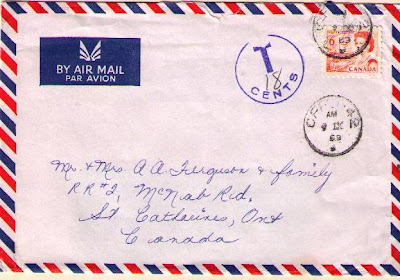 BY AIR MAIL
PAR AVION
T
18
CENTS
CANADA
AM
9 IX
69
Mr. & Mrs. A. A. Ferguson & family
RR #2, McNab Rd.
St. Catharines, Ont
Canada